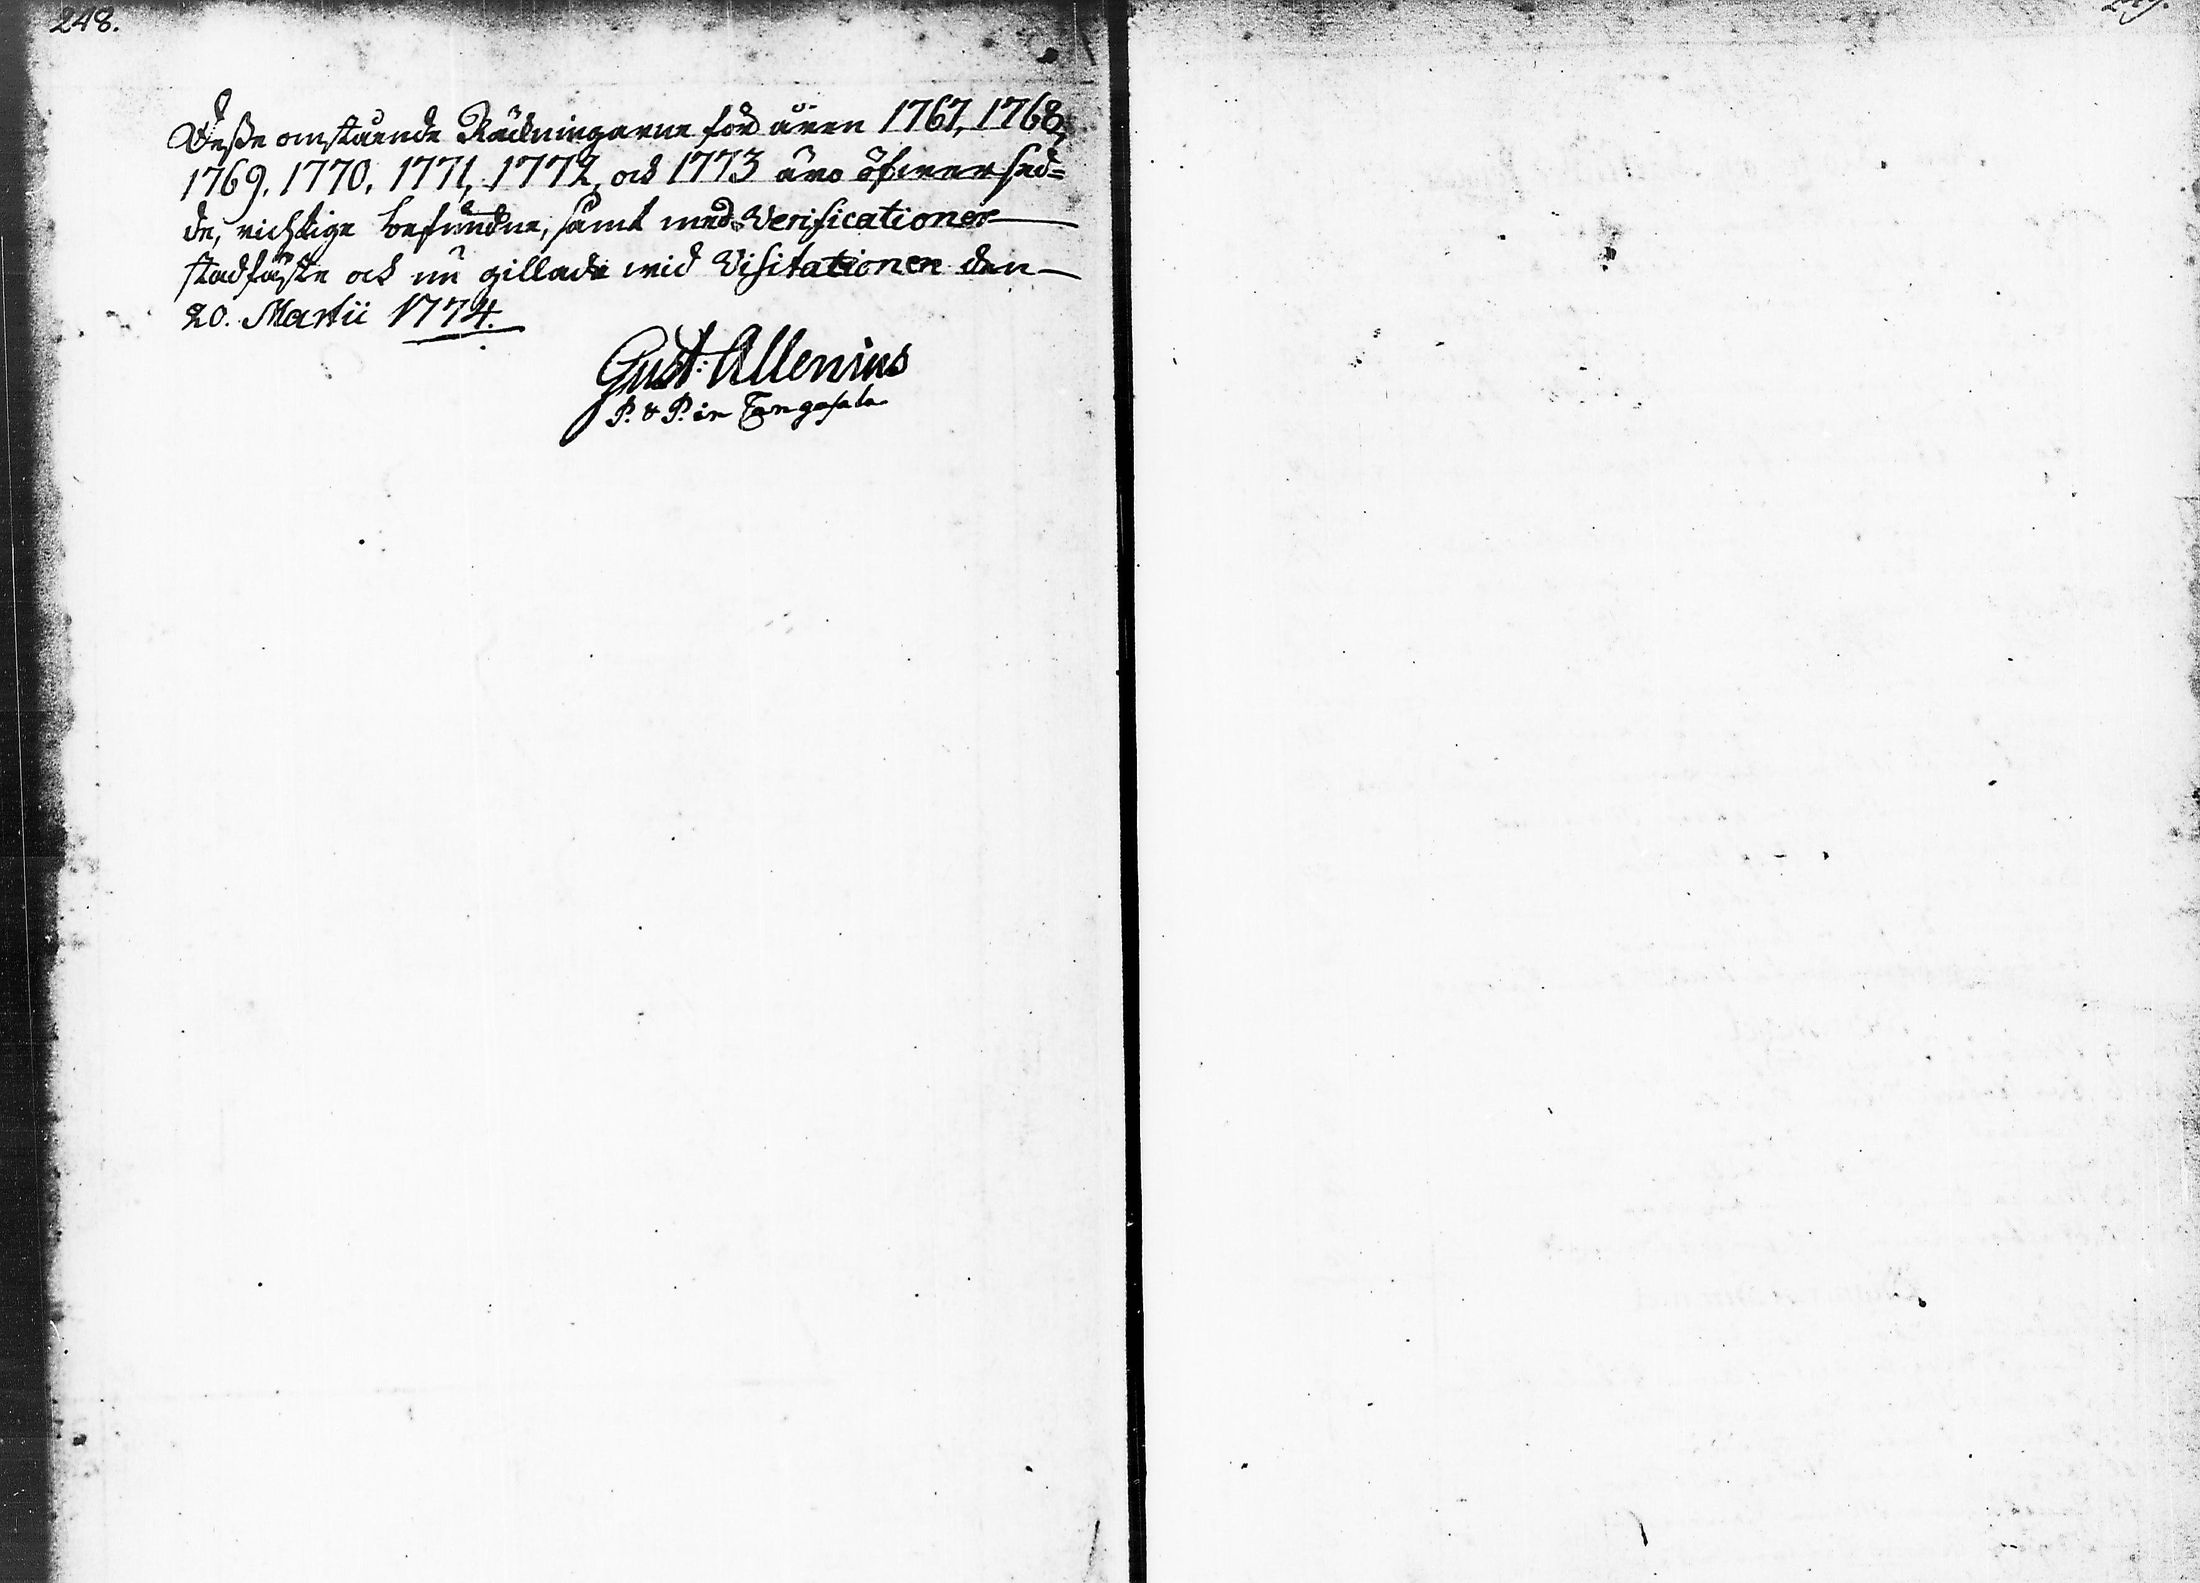 248.
Desse omstående Räckningarne för åren 1767, 1768,
1769. 1770. 1771, 1772, och 1773 äro öfwersed=
de, richtige befundne, samt med Verificationer
stadfäste och nu gillade wid Visitationen den
20. Martii 1774.
Gust: Allenius
P. & P. in Tangasala